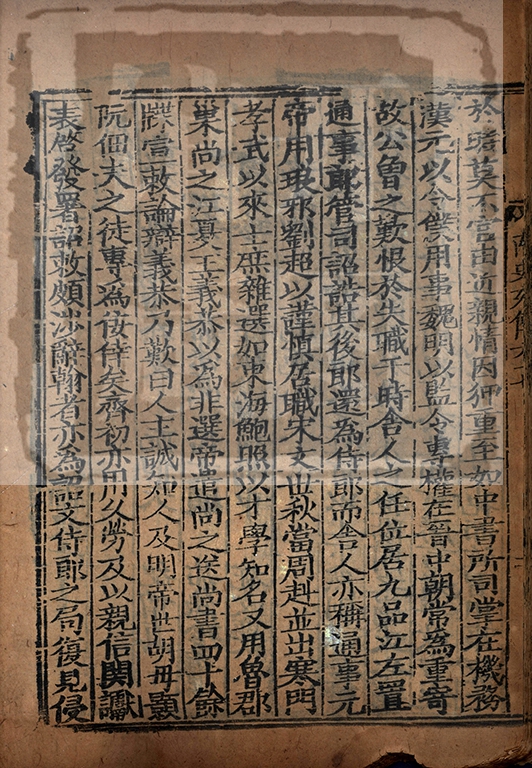 於暗莫不官由近親情因狎重至如中書所司掌在機務
漢元以令僕用事魏明以監令專權在晉中朝常為重寄
故公魯之歎恨於失職于時舍人之任位居九品江左置
通事郎管司詔誥其後郎還為侍郎而舍人亦稱通事元
帝用琅邪劉超以謹慎居職宋文世秋當周赳並出寒門
孝武以來士庶雜選如東海鮑照以才學知名又用魯郡
巢尚之江夏王義恭以為非選帝遣尚之送尚書四十餘
牒宣敕論辯義恭乃歎曰人主誠知人及明帝世胡毋顥
阮佃夫之徒專為佞倖矣齊初亦用久勞及以親信關讞
表啓發署詔敕頗涉辭翰者亦為詔文侍郎之局復見侵